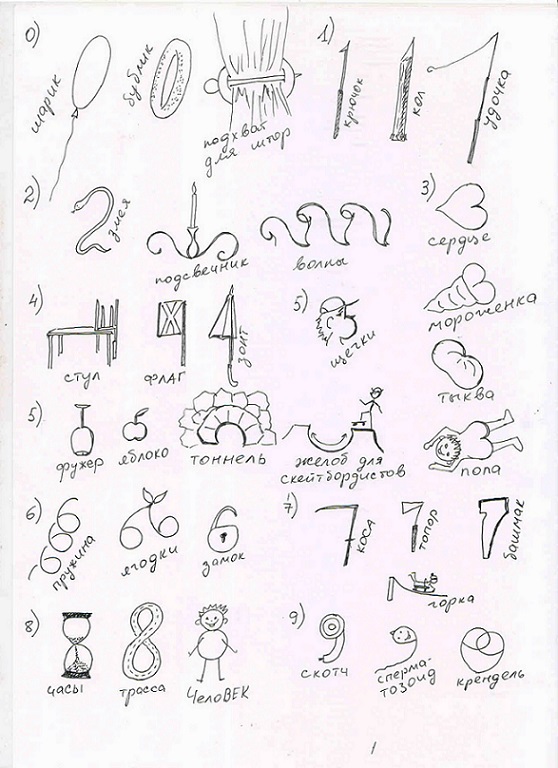 0)
шарик
бублик
подхват
для штор
1)
крючок
кол
удочка
2)
змея
подсвечник
волны
3)
сердце
мороженка
тыква
попа
4)
стул
флаг
зонт
5)
щечки
5)
фужер
яблоко
тоннель
желоб для
скейтбордистов
6)
пружина
ягодки
замок
7)
коса
топор
башмак
горка
8)
часы
трасса
ЧелоВЕК
9)
скотч
сперма-
тозоид
крендель
1